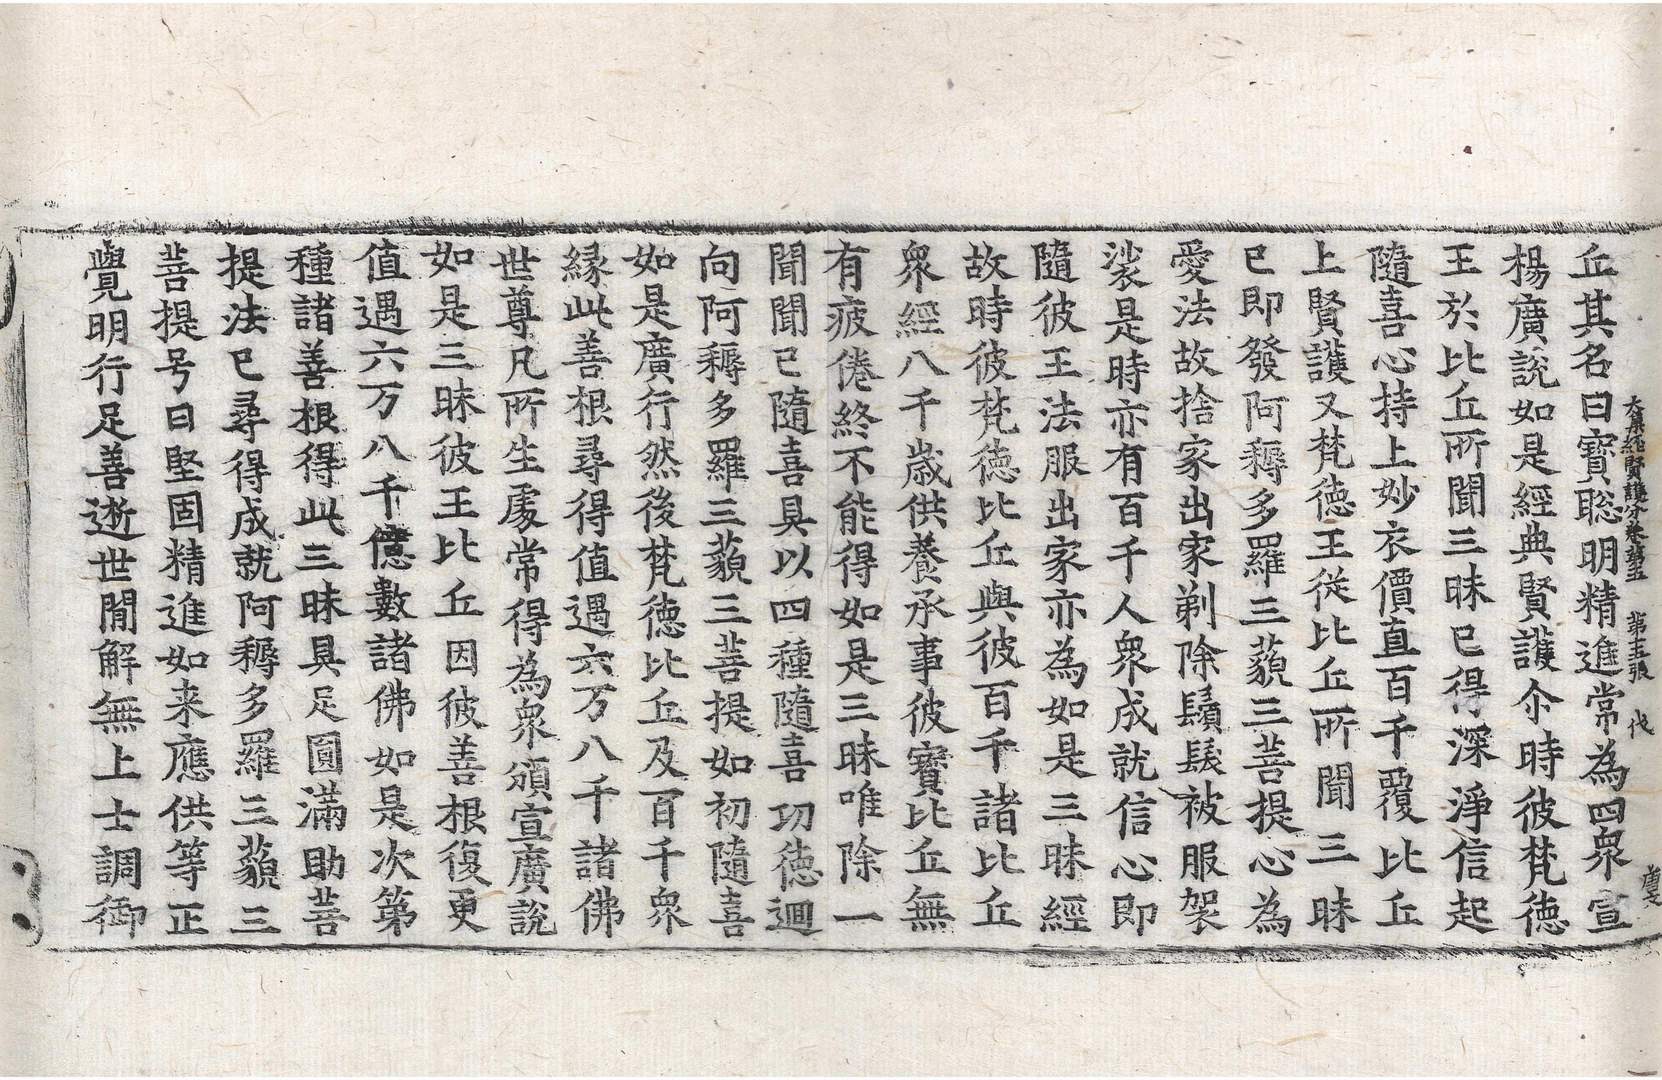 大集經賢護分卷第五　第十五張　伐
丘其名曰寶聡明精進常為四衆宣
楊廣說如是經典賢護尒時彼梵德
王於比丘所聞三昧已得深淨信起
隨喜心持上妙衣價直百千覆比丘
上賢護又梵德王從比丘所聞三昧
已即發阿耨多羅三藐三菩提心為
愛法故捨家出家剃除鬚髮被服袈
裟是時亦有百千人衆成就信心即
隨彼王法服出家亦為如是三昧經
故時彼梵德比丘與彼百千諸比丘
衆經八千歳供養承事彼寶比丘無
有疲倦終不能得如是三昧唯除一
聞聞已隨喜具以四種隨喜功德迴
向阿耨多羅三藐三菩提如初隨喜
如是廣行然後梵德比丘及百千衆
緣此善根尋得值遇六万八千諸佛
世尊凡所生處常得為衆頒宣廣說
如是三昧彼王比丘因彼善根復更
值遇六万八千億數諸佛如是次第
種諸善根得此三昧具足圓滿助菩
提法已尋得成就阿耨多羅三藐三
菩提号曰堅固精進如来應供等正
覺明行足善逝世閒解無上士調御